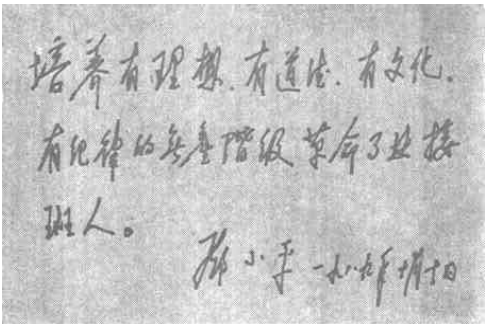 培养有理想、有道德、有文化、
有纪律的无产階级革命事业接
班人。
邓小平 一九八九年十月十日